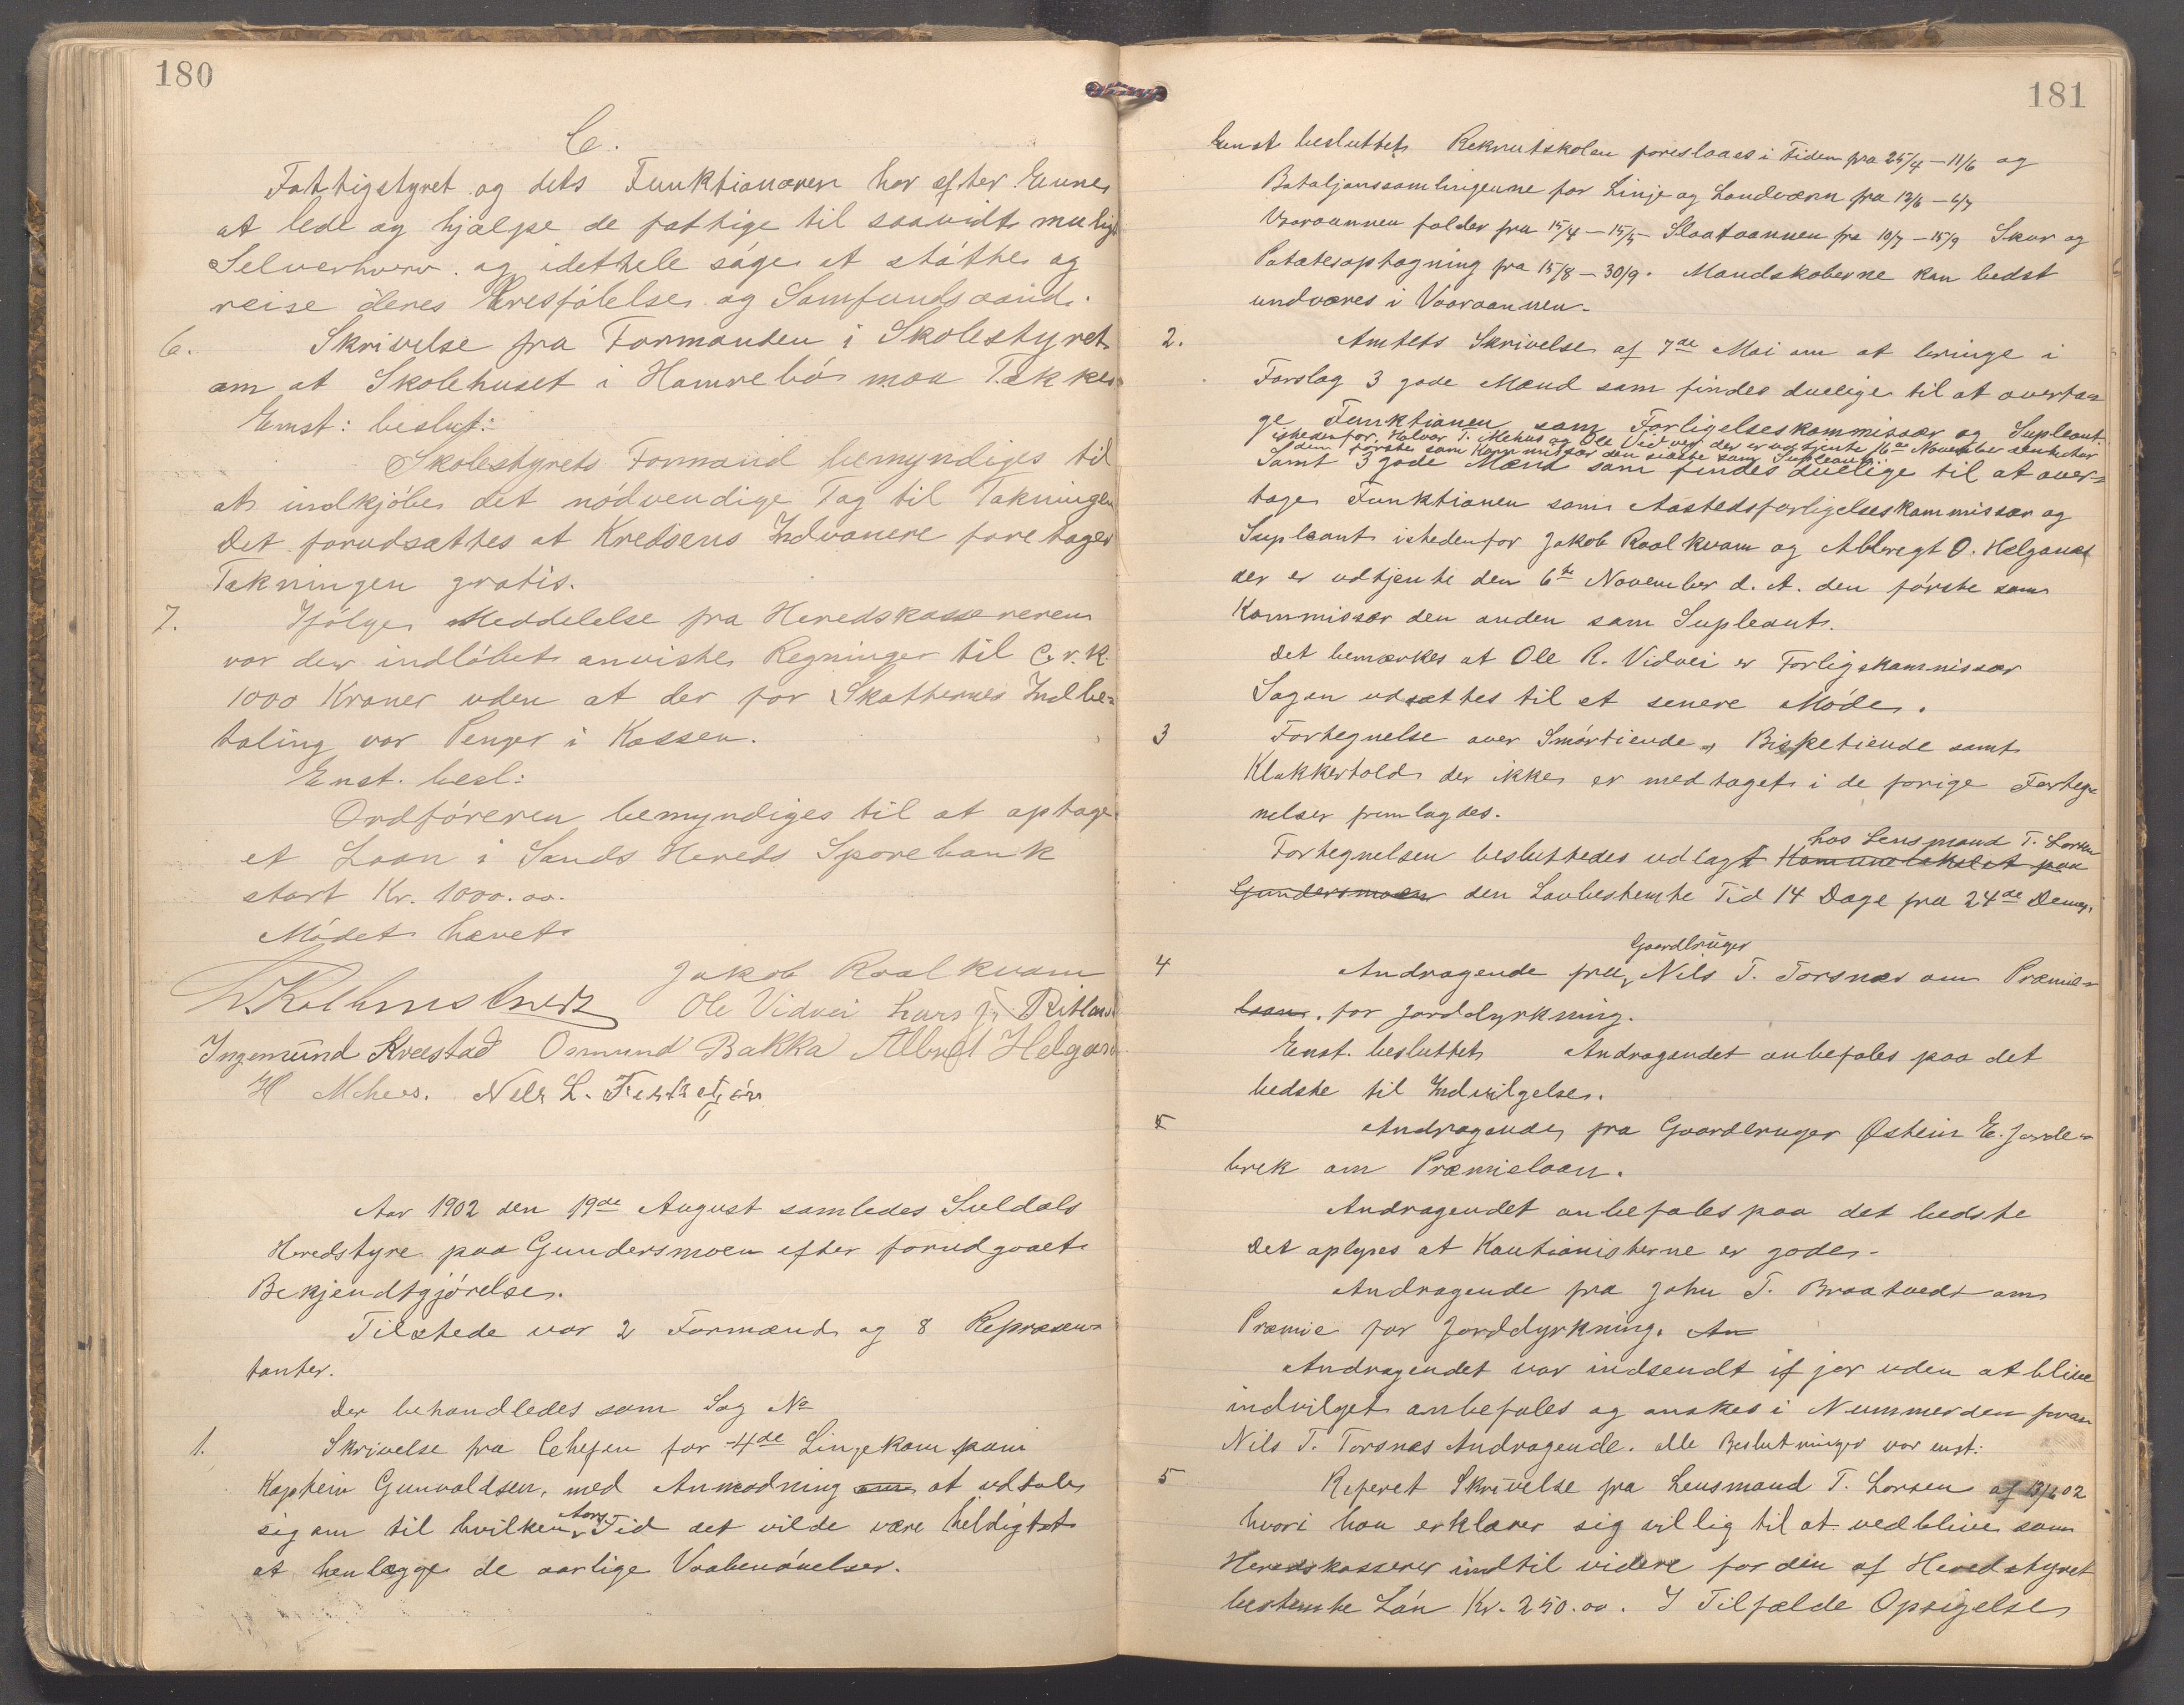 180
C.
Fattigstyret og dets Funktionærer har efter Evne
at lede og hjælpe de fattige til saavidt muligt
Selverhverv og idethele søge at støtte og
reise deres Æresfølelse og Samfundsaand.
6. Skrivelse fra Formanden i Skolestyret
om at Skolehuset i Hamrebø maa Tækkes
Enst: beslut:
Skolestyrets Formand bemyndiges til
at indkjøbe det nødvendige Tag til Tækningen
Det forudsættes at Kredsens Indvaanere foretager
Tækningen gratis.
7. Ifølge Meddelelse fra Heredskassereren
var der indløbet anviste Regninger til c. r. K.
1000 Kroner uden at der før Skatternes Indbe=
taling var Penger i Kassen.
Enst. besl:
Ordføreren bemyndiges til at optage
et Laan i Sands Hereds Sparebank
stort Kr. 1000.00.
Mødet hævet
Jakob Roalkvam
Ole Vidvei Lars J. Ritland
Ingemund Kvæstad Osmund Bakka Albregt Helgaas
H Mehus. Nels L.
Aar 1902 den 19de August samledes Suldals
Heredstyre paa Gundersmoen efter forudgaaet
Bekjendtgjørelse.
Tilstede var 2 Formænd og 8 Repræsen=
tanter.
Der behandledes som Sag No
1. Skrivelse fra Chefen for 4de Linjekompani
Kaptein Gunvaldsen, med Anmodning om at udtale
sig om til hvilken Aars Tid det vilde være heldigst
at henlægge de aarlige Vaabenøvelser.
181
Enst besluttet Rekrutskolen foreslaaes i Tiden fra 25/4 - 11/6 og
Bataljonssamlingerne for Linje og Landværn fra 12/6 - 6/7
Vaaraannen falder fra 15/4 - 15/5 Slaataannen fra 10/7 - 15/9 Skur og
Potatesoptagning fra 15/8 - 30/9. Mandskaberne kan bedst
undværes i Vaaraannen.
2. Amtets Skrivelse af 7de Mai om at bringe i
Forslag 3 gode Mænd som findes duelige til at overta=
ge Funktionen som Forligelseskommissær og Supleant
istedenfor Halvor T. Mehus og Ole Vidvei der er udtjente 16de November
den første som Kommissær den sidste som Supleant
Samt 3 gode Mænd som findes duelige til at over=
tage Funktionen som Aastedsforligelseskommissær og
Supleant istedenfor Jakob Roalkvam og Albregt O. Helgaas
der er udtjente den 6te November d. A. den første som
Kommissær den anden som Supleant.
Det bemærkes at Ole R. Vidvei er Forligskommissær
Sagen udsættes til et senere Møde.
3 Fortegnelse over Smørtiende, Bispetiende samt
Klokkertold der ikke er medtaget i de forige Forteg=
nelser fremlagdes.
hos Lensmand T. Larsen
Fortegnelsen besluttedes udlagt Komunelokalet paa
Gundersmoen den Lovbestemte Tid 14 Dage fra 24de Dennes.
Gaardbruger
4 Andragende fra Nils T. Torsnes om Præmie=
laan. for Jorddyrkning.
Enst. besluttet Andragendet anbefales paa det
bedste til Indvilgelse.
5 Andragende fra Gaardbruger Østein E. Jorde=
brek om Præmielaan.
Andragendet anbefales paa det bedste
Det oplyses at Kautionisterne er gode.
Andragende fra John T. Braatvedt om
Præmie for Jorddyrkning. An
Andragendet var indsendt if jor uden at blive
indvilget anbefales og ønskes i Nummerden foran
Nils T. Torsnes Andragende. Alle Beslutninger var enst:
5 Referet Skrivelse fra Lensmand T. Larsen af 13/6 02
hvori han erklærer sig villig til at vedblive som
Heredskasserer indtil videre for den af Heredstyret
bestemte Løn Kr. 250.00. I Tilfælde Opsigelse